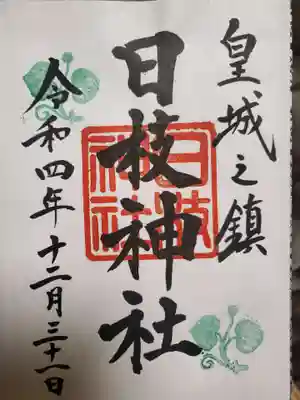 皇城之鎮
日枝神社
令和四年十二月三十一日
日枝
神社